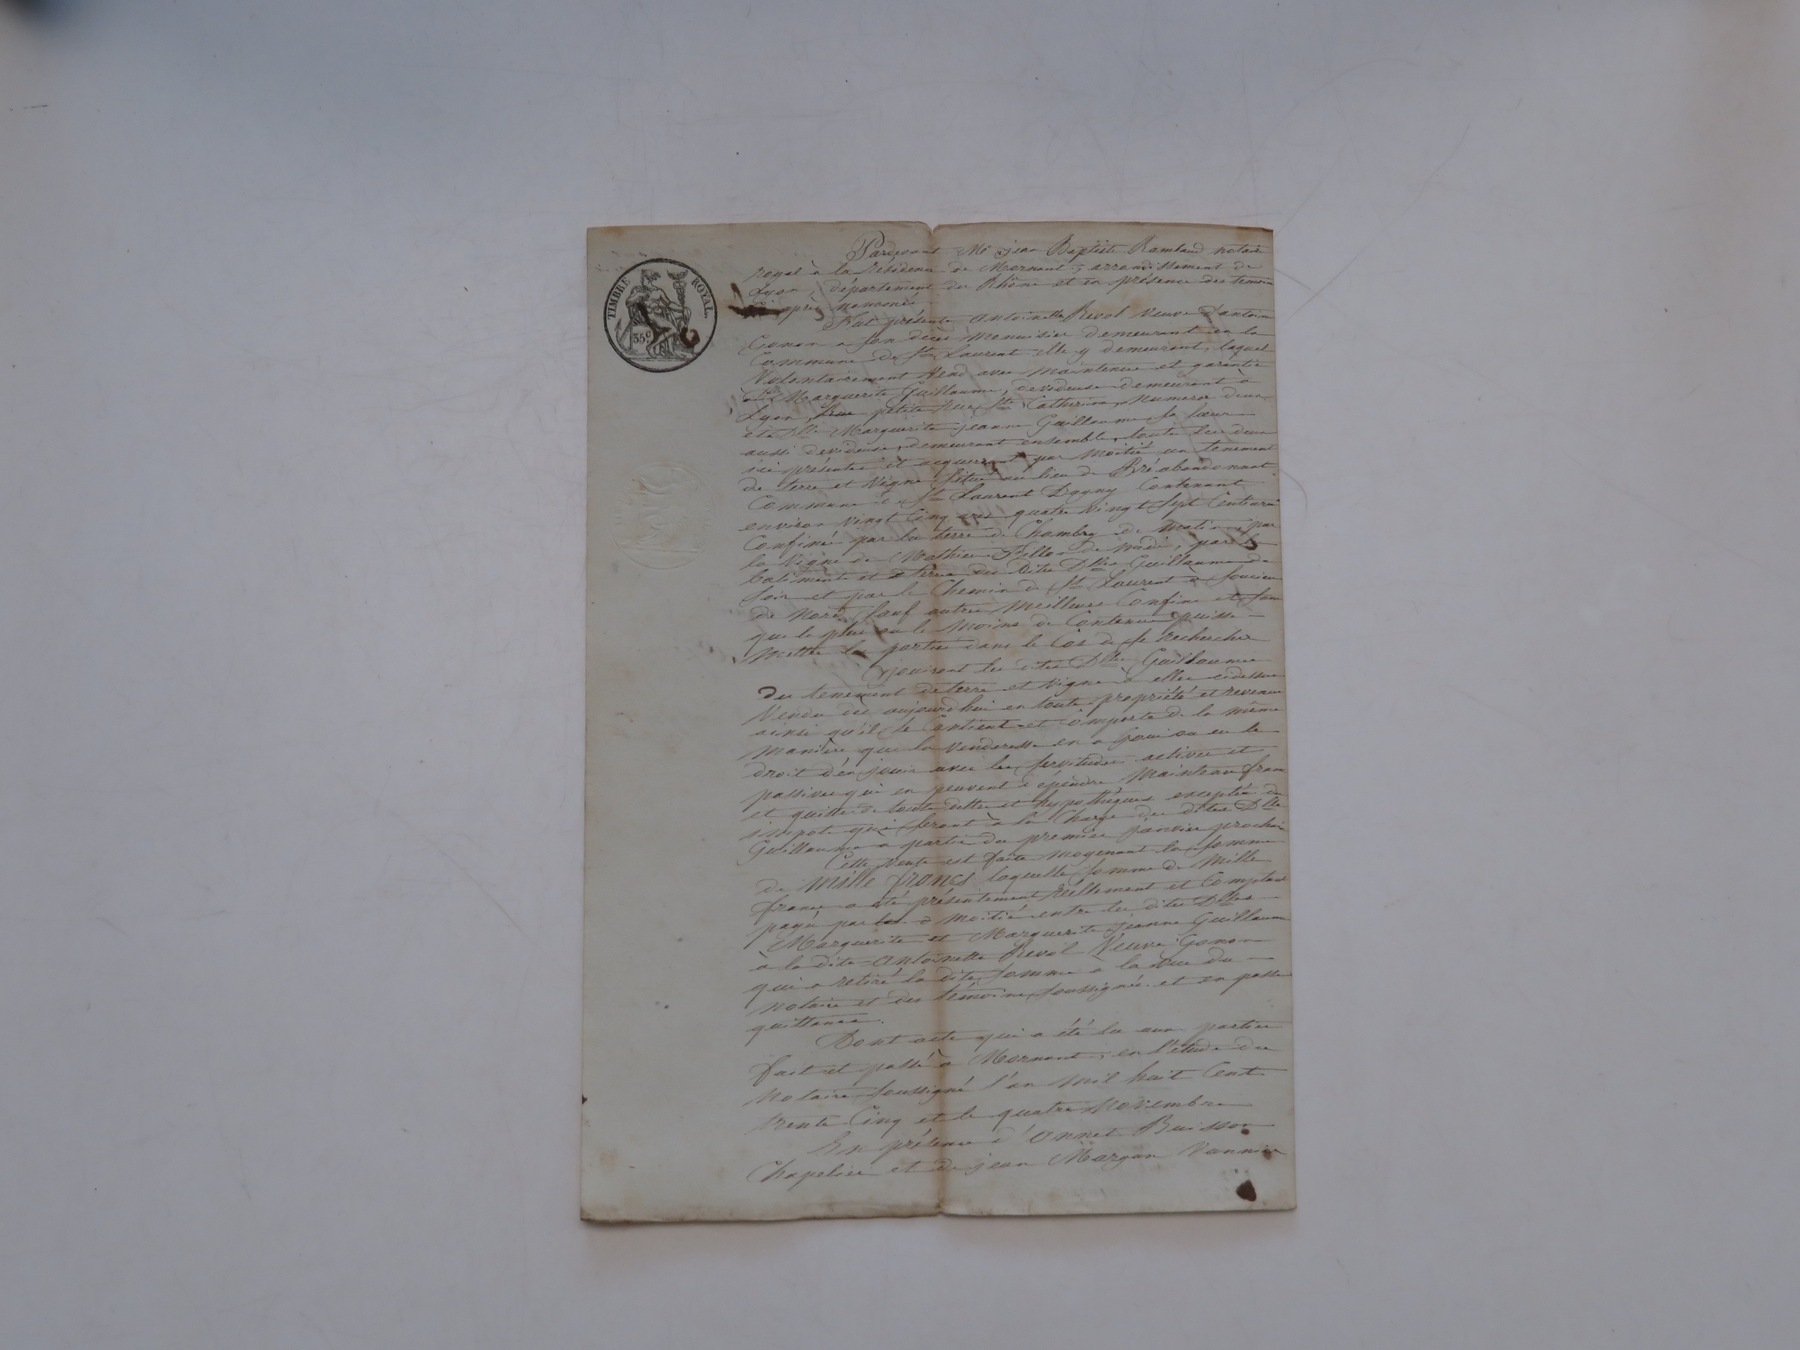 TIMBRE ROYAL.
35 c
Pardevant Me jean Baptiste Rambaud notaire
royal à la résidence de Mornant, arrondissement de
Lyon, département du Rhône et en présence des temoins
ci après nommés
Fut présente Antoinette Revol Veuve d'antoine
Gonon a son décès Menuisier demeurant en la
Commune de St Laurent elle y demeurant, laquelle
Volontairement Vend avec maintenue et garantie
a Dlle Marguerite Guillaume, devideuse demeurant à
Lyon, petite Rue Ste Catherine, Numero deux
et a Dlle Marguerite jeanne Guillaume sa sœur
aussi devideuse, demeurant ensemble, toutes les deux
ici présentes et acquerant par moitié un tenement
de terre et Vigne situé au lieu de Pré abandonnat
Commune de St Laurent Dagny Contenant
environ Vingt Cinq ares quatre Vingt Sept Centiares
Confiné par la terre de Chambry de Matin, par
la Vigne de Mathieu de midi, par les
batiments et terres des dites Dlles Guillaume de
soir et par le Chemin de St Laurent a Soucieu
de Nord, Sauf autres meilleurs Confins et sans
que le plus ou le moins de Contenue puisse
mettre les parties dans le Cas de se rechercher
Jouiront les dites Dlles Guillaume
du tenement de terre et Vigne à elles cidessus
Vendu dès aujourd'hui en toute propriété et revenus
ainsi qu'il se Contient et Comporte de la même
manière que la Venderesse en a joui ou eu le
droit d'en jouir avec les servitudes actives et
passives qui en peuvent dépendre Maintenu franc
et quitte de toute dette et hypothèques excepté des
impots qui seront à la Charge des dites Dlles
Guillaume a partir du premier janvier prochain
Cette Vente est faite moyenant la somme
de Mille francs laquelle somme de Mille
francs a été présentement réellement et Comptant
payé par moitié entre les dites Dlles
Marguerite et Marguerite jeanne Guillaume
à la dite Antoinette Revol Veuve Gonon
qui a retiré la dite somme a la Vue du
Notaire et des témoins soussignés et en passe
quittance.
Dont acte qui a été lu aux parties
fait et passé à Mornant, en l'étude du
Notaire soussigné l'an mil huit Cent
trente Cinq et le quatre Novembre
En présence d'Annet Buisson
Chapelier et de jean Margan Vannier